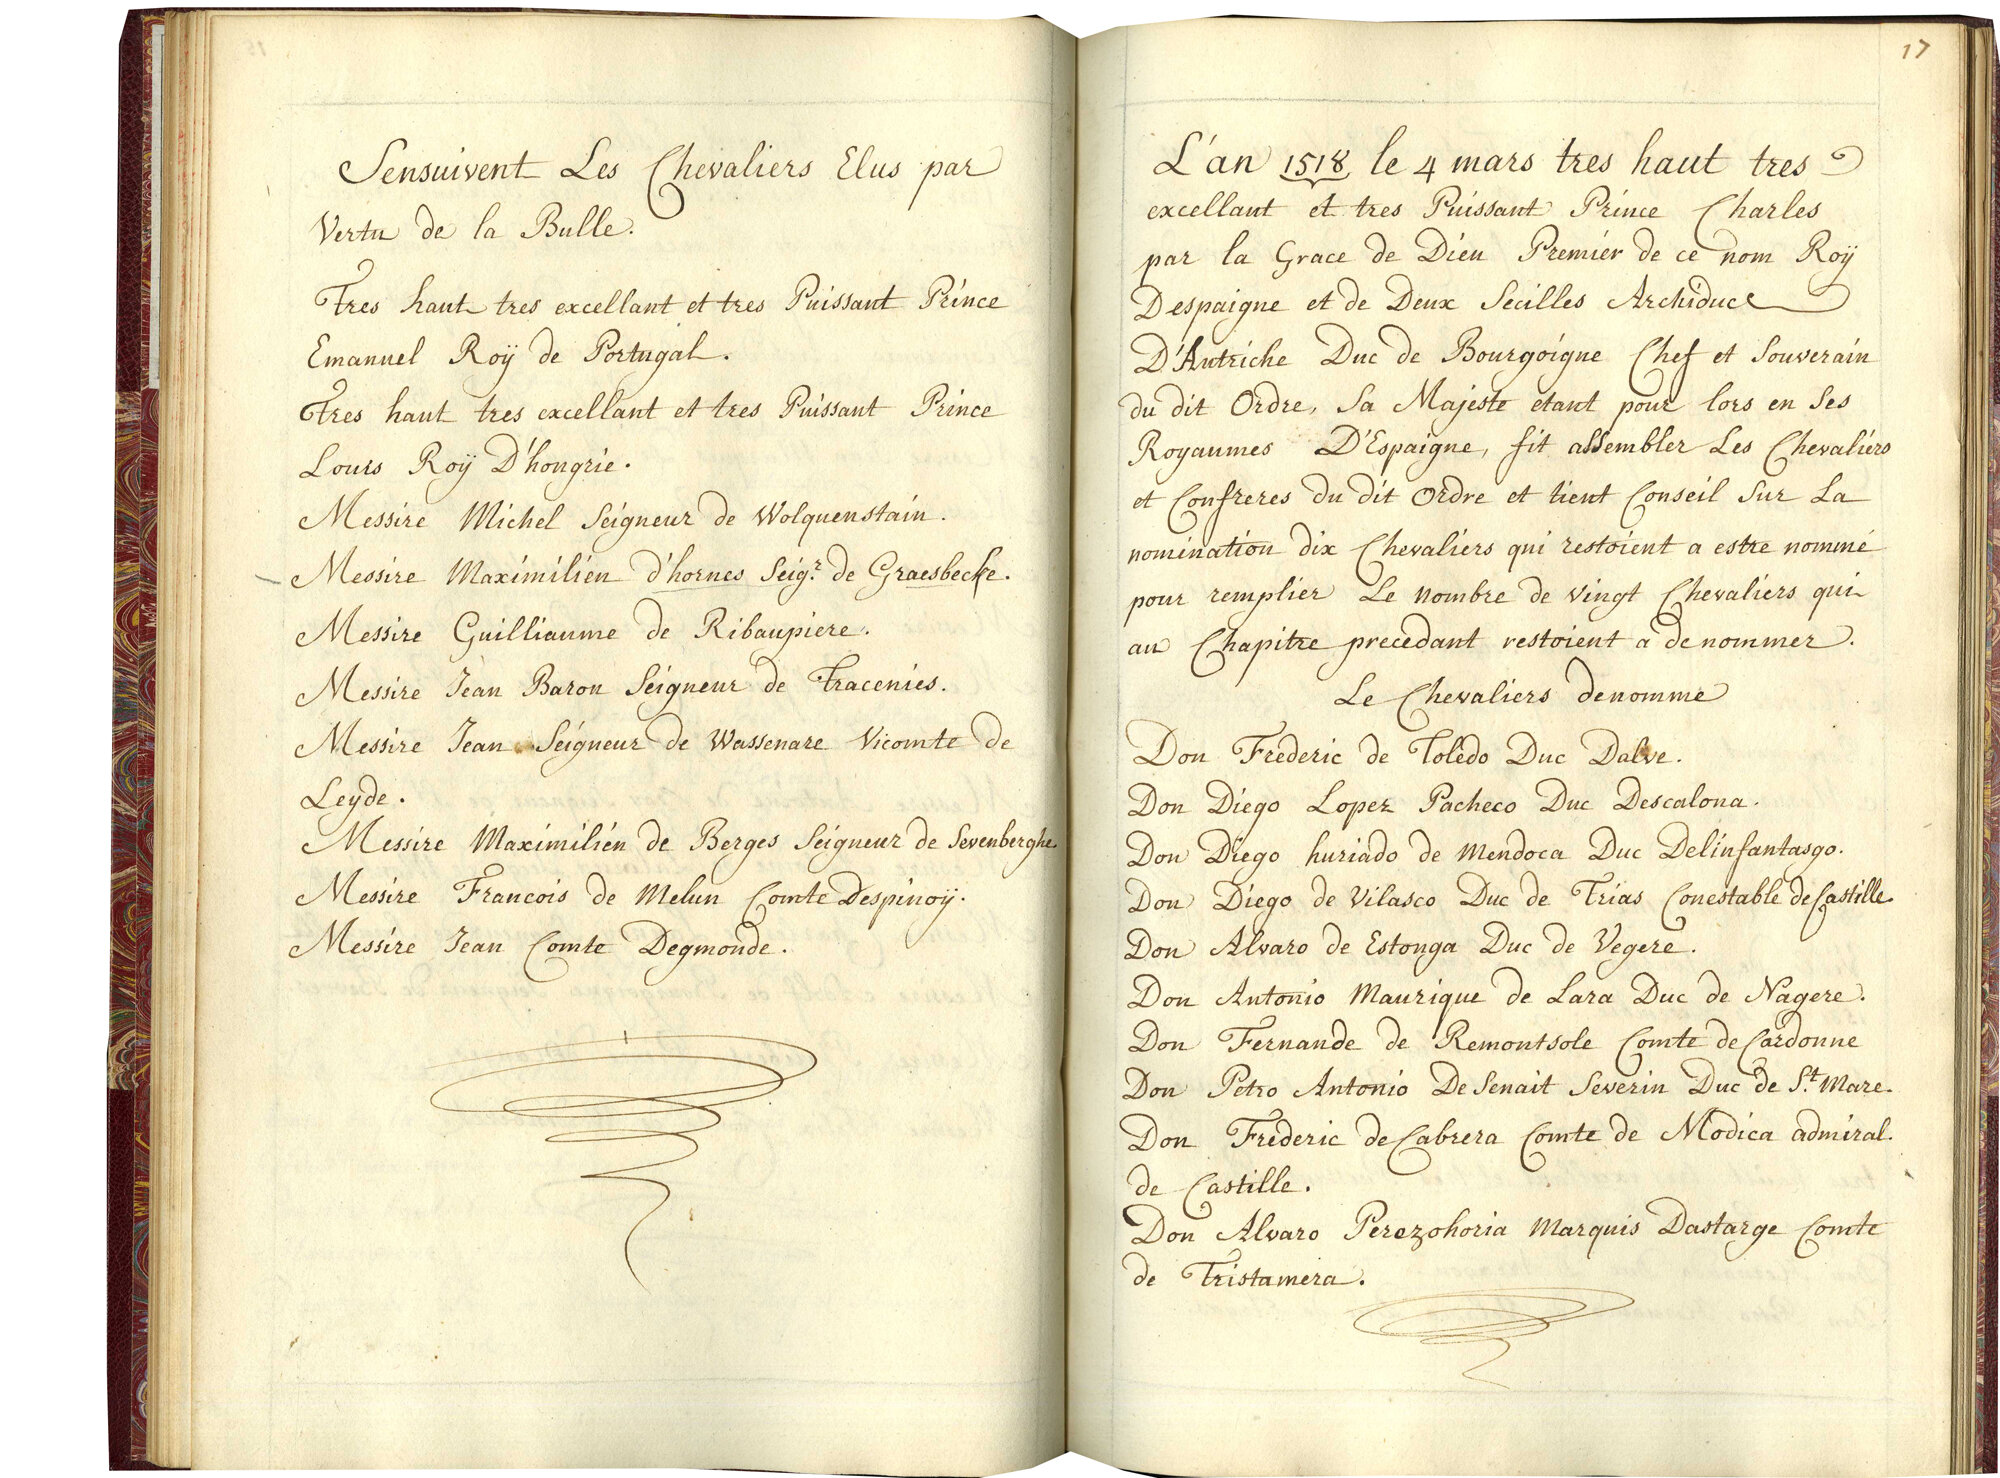 Sensuivent Les Chevaliers Elus par
Vertu de la Bulle.
Tres haut tres excellant et tres Puissant Prince
Emanuel Roÿ de Portugal.
Tres haut tres excellant et tres Puissant Prince
Louis Roÿ D'hongrie.
Messire Michel Seigneur de Wolquenstain.
Messire Maximilien d'hornes Seigr. de Graesbecke.
Messire Guilliaume de Ribaupiere.
Messire Jean Baron Seigneur de Tracenies.
Messire Jean Seigneur de Wassenare Vicomte de
Leyde.
Messire Maximilien de Berges Seigneur de Sevenberghe
Messire Francois de Melun Comte Despinoÿ.
Messire Jean Comte Degmonde.
17
L'an 1518 le 4 mars tres haut tres
excellant et tres Puissant Prince Charles
par la Grace de Dieu Premier de ce nom Roÿ
Despaigne et de Deux Secilles Archiduc
D'Autriche Duc de Bourgoigne Chef et Souverain
du dit Ordre, Sa Majeste etant pour lors en Ses
Royaumes D'Espaigne, fit assembler Les Chevaliers
et Confreres du dit Ordre et tient Conseil Sur La
nomination dix Chevaliers qui restoient a estre nommé
pour remplier Le nombre de vingt Chevaliers qui
au Chapitre precedant restoient a denommer.
Le Chevaliers denomme
Don Frederic de Toledo Duc Dalve.
Don Diego Lopez Pacheco Duc Descalona.
Don Diego huriado de Mendoca Duc Delinfantasgo.
Don Diego de Vilasco Duc de Trias Conestable de Castille.
Don Alvaro de Estonga Duc de Vegere.
Don Antonio Maurique de Lara Duc de Nagere.
Don Fernande de Remontsole Comte de Cardonne
Don Petro Antonio De Senait Severin Duc de St. Mare.
Don Frederic de Cabrera Comte de Modica admiral.
de Castille.
Don Alvaro Perezohoria Marquis Dastarge Comte
de Tristamera.